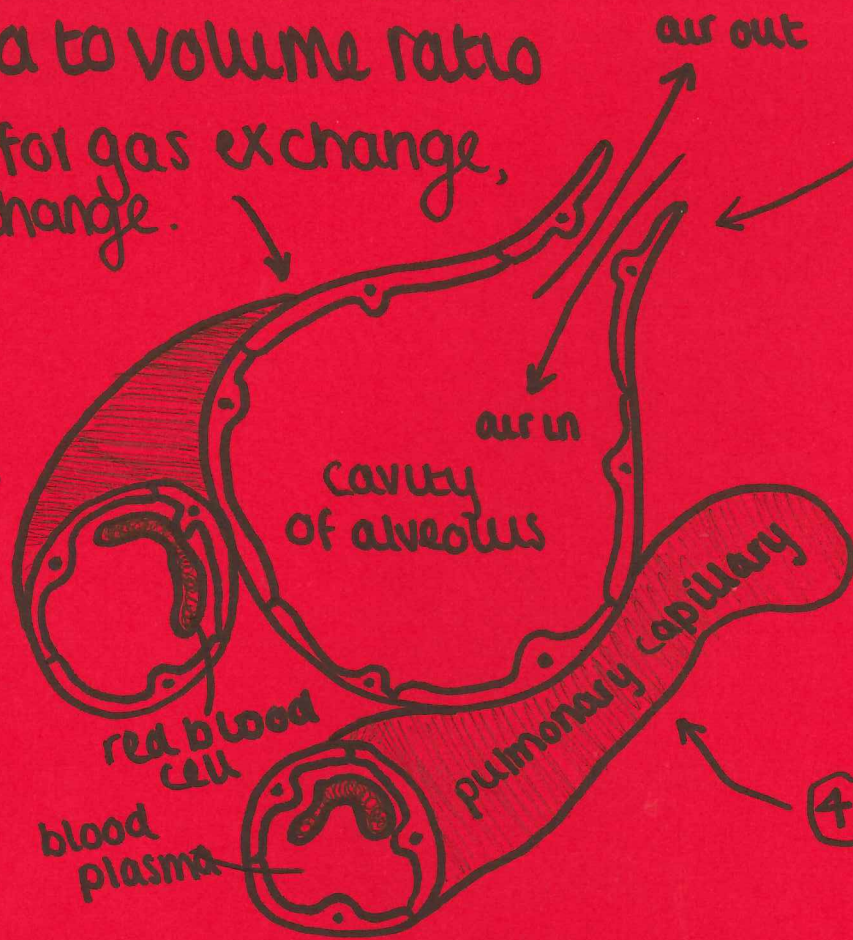 a to volume ratio
for gas exchange,
hange.
air out
air in
cavity
of alveolus
pulmonary capillary
red blood
cell
blood
plasma
4